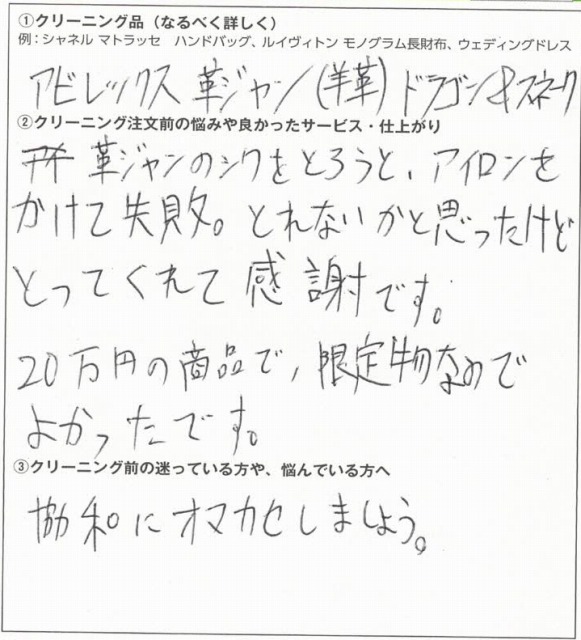 ①クリーニング品（なるべく詳しく）
例：シャネル マトラッセ　ハンドバッグ、ルイヴィトン モノグラム長財布、ウェディングドレス
アビレックス 革ジャン(羊革) ドラゴン&スネーク
②クリーニング注文前の悩みや良かったサービス・仕上がり
革ジャンのシワをとろうと、アイロンを
かけて失敗。とれないかと思ったけど
とってくれて感謝です。
20万円の商品で、限定物なので
よかったです。
③クリーニング前の迷っている方や、悩んでいる方へ
協和にオマカセしましょう。